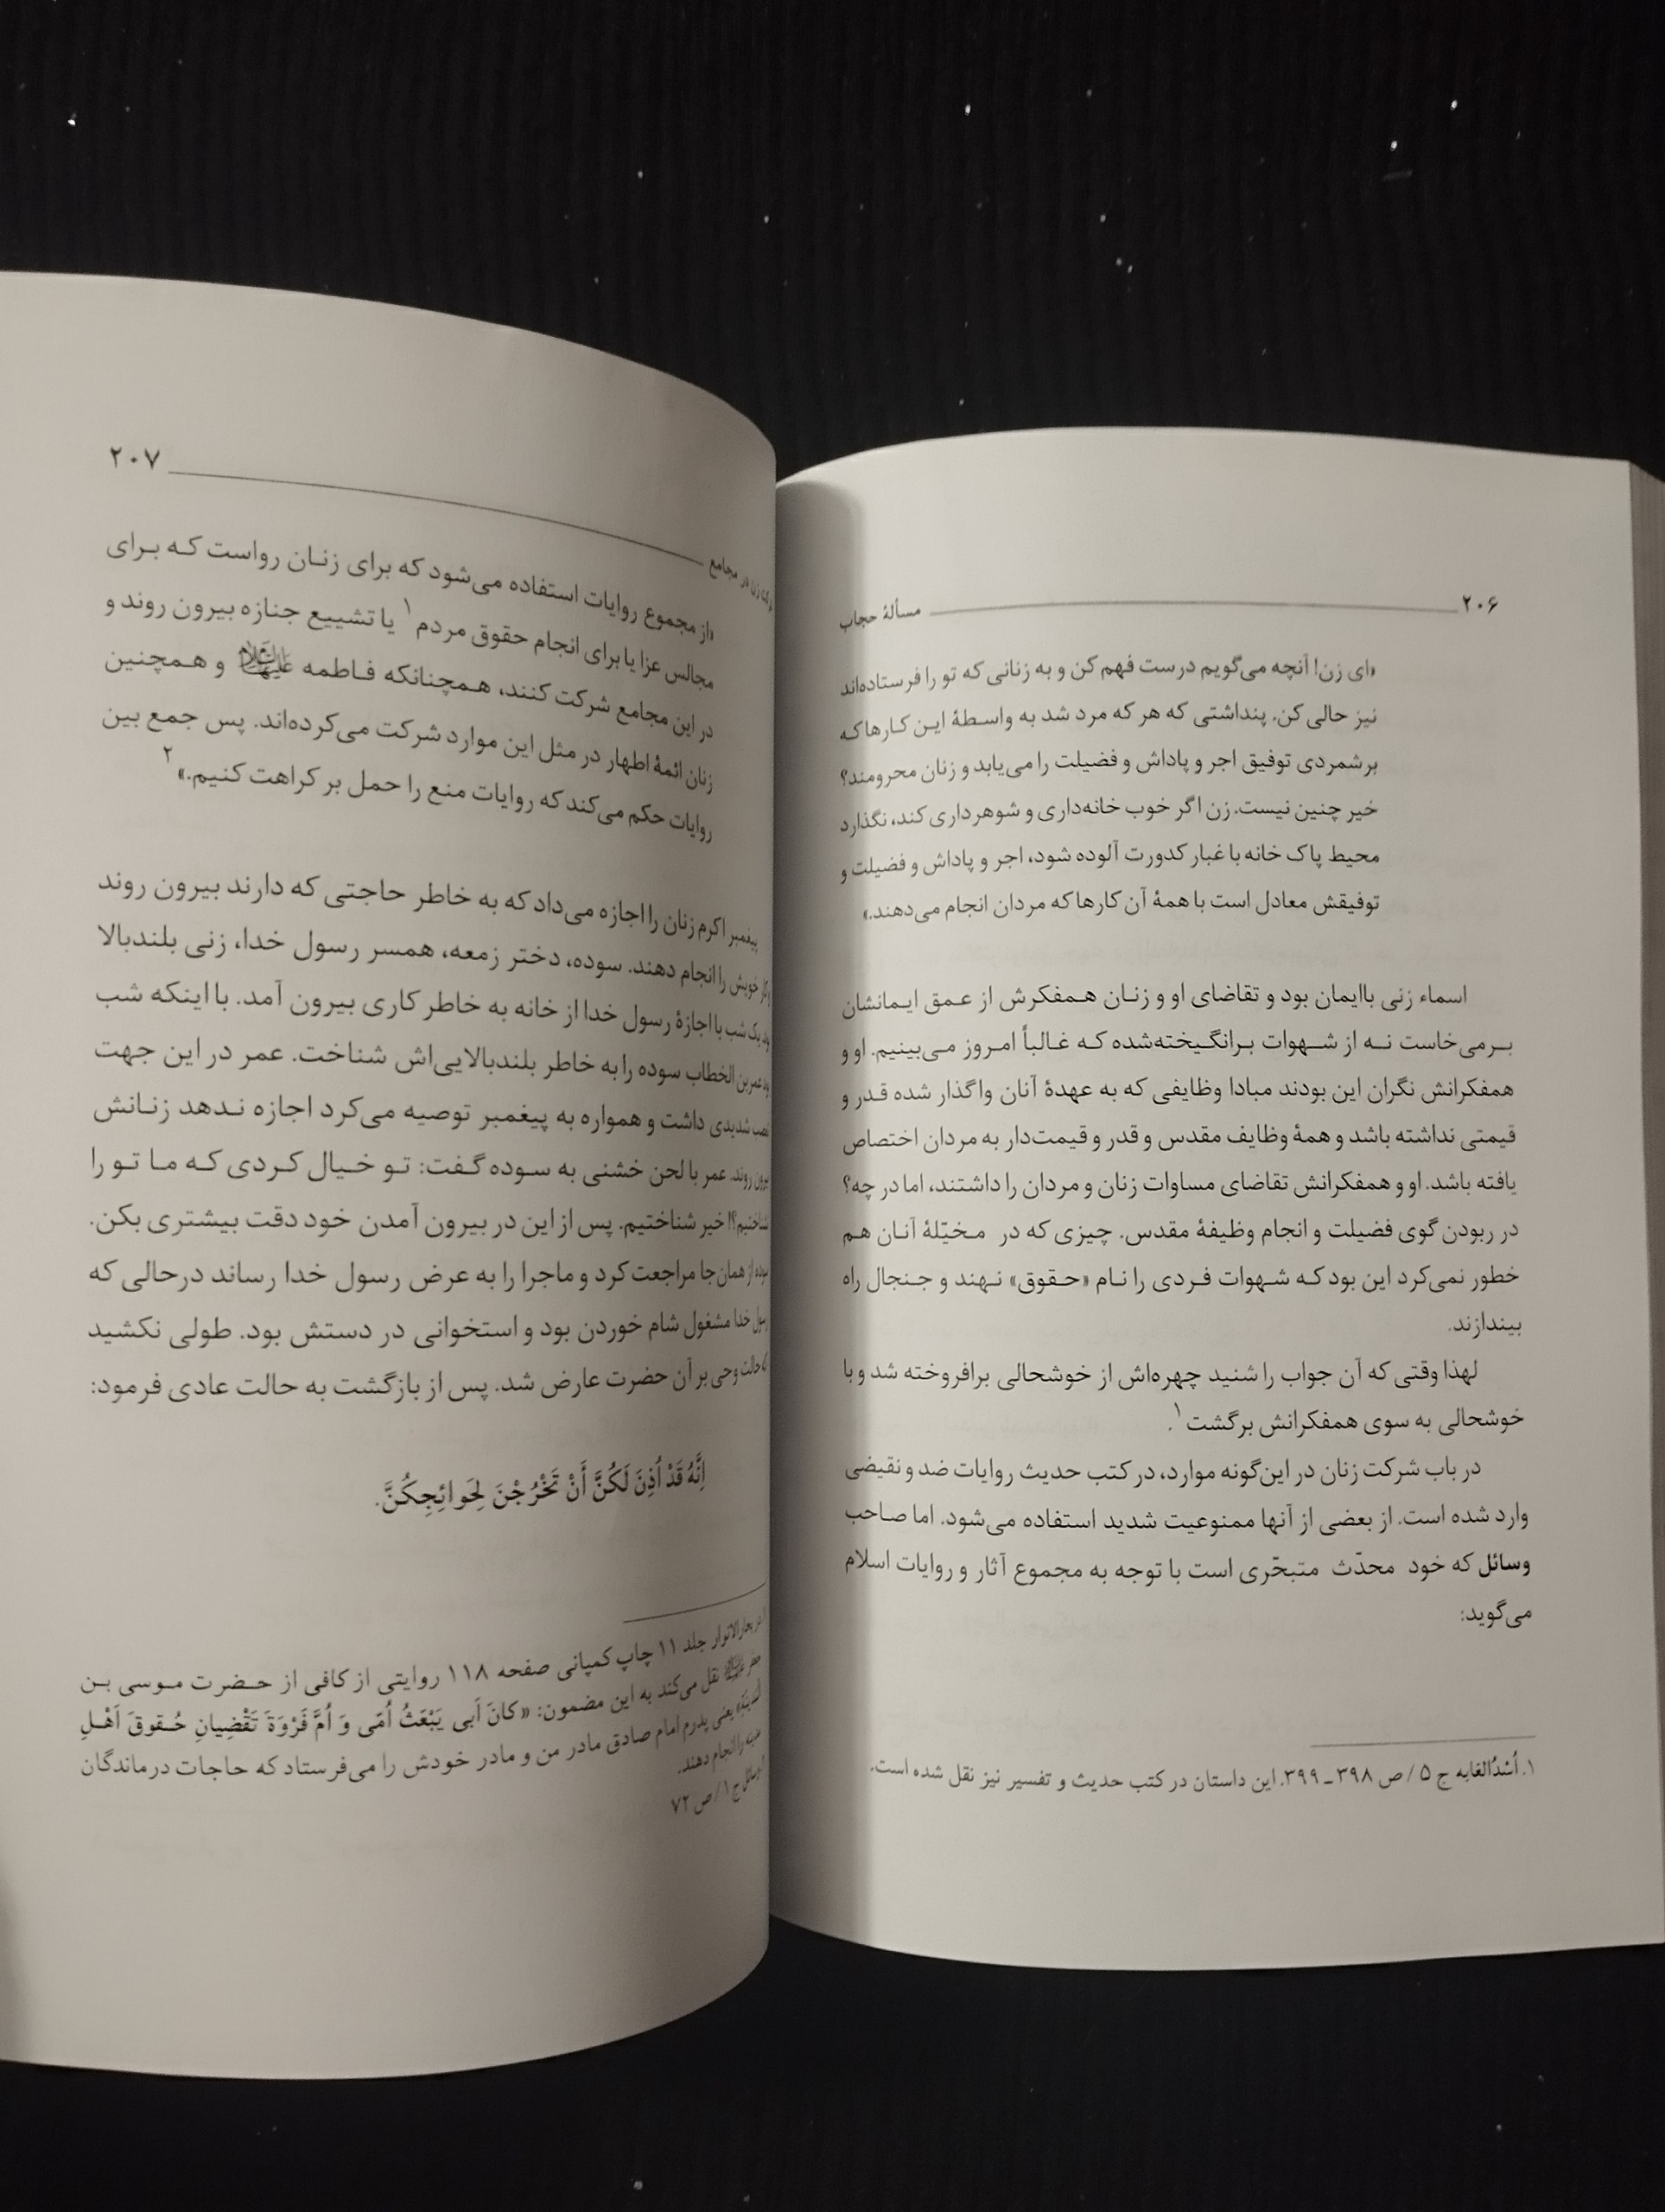 ۲۰۶
مسألهٔ حجاب
«ای زن! آنچه می‌گویم درست فهم کن و به زنانی که تو را فرستاده‌اند
نیز حالی کن. پنداشتی که هر که مرد شد به واسطهٔ این کارها که
برشمردی توفیق اجر و پاداش و فضیلت را می‌یابد و زنان محرومند؟
خیر چنین نیست. زن اگر خوب خانه‌داری و شوهرداری کند، نگذارد
محیط پاک خانه با غبار کدورت آلوده شود، اجر و پاداش و فضیلت و
توفیقش معادل است با همهٔ آن کارها که مردان انجام می‌دهند.»
اسماء زنی باایمان بود و تقاضای او و زنان همفکرش از عمق ایمانشان
برمی‌خاست نه از شهوات برانگیخته‌شده که غالباً امروز می‌بینیم. او و
همفکرانش نگران این بودند مبادا وظایفی که به عهدهٔ آنان واگذار شده قدر و
قیمتی نداشته باشد و همهٔ وظایف مقدس و قدر و قیمت‌دار به مردان اختصاص
یافته باشد. او و همفکرانش تقاضای مساوات زنان و مردان را داشتند، اما در چه؟
در ربودن گوی فضیلت و انجام وظیفهٔ مقدس. چیزی که در مخیّلهٔ آنان هم
خطور نمی‌کرد این بود که شهوات فردی را نام «حقوق» نهند و جنجال راه
بیندازند.
لهذا وقتی که آن جواب را شنید چهره‌اش از خوشحالی برافروخته شد و با
خوشحالی به سوی همفکرانش برگشت۱.
در باب شرکت زنان در این‌گونه موارد، در کتب حدیث روایات ضد و نقیضی
وارد شده است. از بعضی از آنها ممنوعیت شدید استفاده می‌شود. اما صاحب
وسائل که خود محدّث متبحّری است با توجه به مجموع آثار و روایات اسلام
می‌گوید:
۱. اُسْدُالغابه ج ۵ / ص ۳۹۸ ـ ۳۹۹. این داستان در کتب حدیث و تفسیر نیز نقل شده است.
شرکت زن در مجامع
۲۰۷
«از مجموع روایات استفاده می‌شود که برای زنان رواست که برای
مجالس عزا یا برای انجام حقوق مردم۱ یا تشییع جنازه بیرون روند و
در این مجامع شرکت کنند، همچنانکه فاطمه علیهاالسلام و همچنین
زنان ائمهٔ اطهار در مثل این موارد شرکت می‌کرده‌اند. پس جمع بین
روایات حکم می‌کند که روایات منع را حمل بر کراهت کنیم.»۲
پیغمبر اکرم زنان را اجازه می‌داد که به خاطر حاجتی که دارند بیرون روند
و کار خویش را انجام دهند. سوده، دختر زمعه، همسر رسول خدا، زنی بلندبالا
بود. یک شب با اجازهٔ رسول خدا از خانه به خاطر کاری بیرون آمد. با اینکه شب
بود عمربن الخطاب سوده را به خاطر بلندبالایی‌اش شناخت. عمر در این جهت
تعصب شدیدی داشت و همواره به پیغمبر توصیه می‌کرد اجازه ندهد زنانش
بیرون روند. عمر با لحن خشنی به سوده گفت: تو خیال کردی که ما تو را
نشناختیم؟! خیر شناختیم. پس از این در بیرون آمدن خود دقت بیشتری بکن.
سوده از همان‌جا مراجعت کرد و ماجرا را به عرض رسول خدا رساند درحالی که
رسول خدا مشغول شام خوردن بود و استخوانی در دستش بود. طولی نکشید
که حالت وحی بر آن حضرت عارض شد. پس از بازگشت به حالت عادی فرمود:
اِنَّهُ قَدْ اُذِنَ لَکُنَّ أَنْ تَخْرُجْنَ لِحَوائِجِکُنَّ.
۱. در بحارالانوار جلد ۱۱ چاپ کمپانی صفحه ۱۱۸ روایتی از کافی از حضرت موسی بن
جعفر علیه‌السلام نقل می‌کند به این مضمون: «کانَ اَبی یَبْعَثُ اُمّی وَ اُمَّ فَرْوَةَ تَقْضِیانِ حُقوقَ اَهْلِ
الْمَدینَةِ» یعنی پدرم امام صادق مادر من و مادر خودش را می‌فرستاد که حاجات درماندگان
مدینه را انجام دهند.
۲. وسائل ج ۱ / ص ۷۲